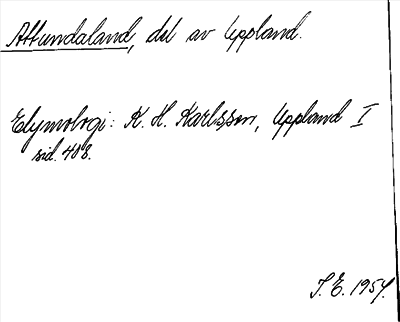 Attundaland, del av Uppland.
Etymologi: K. H. Karlsson, Uppland I
sid. 408.
S. E. 1954.